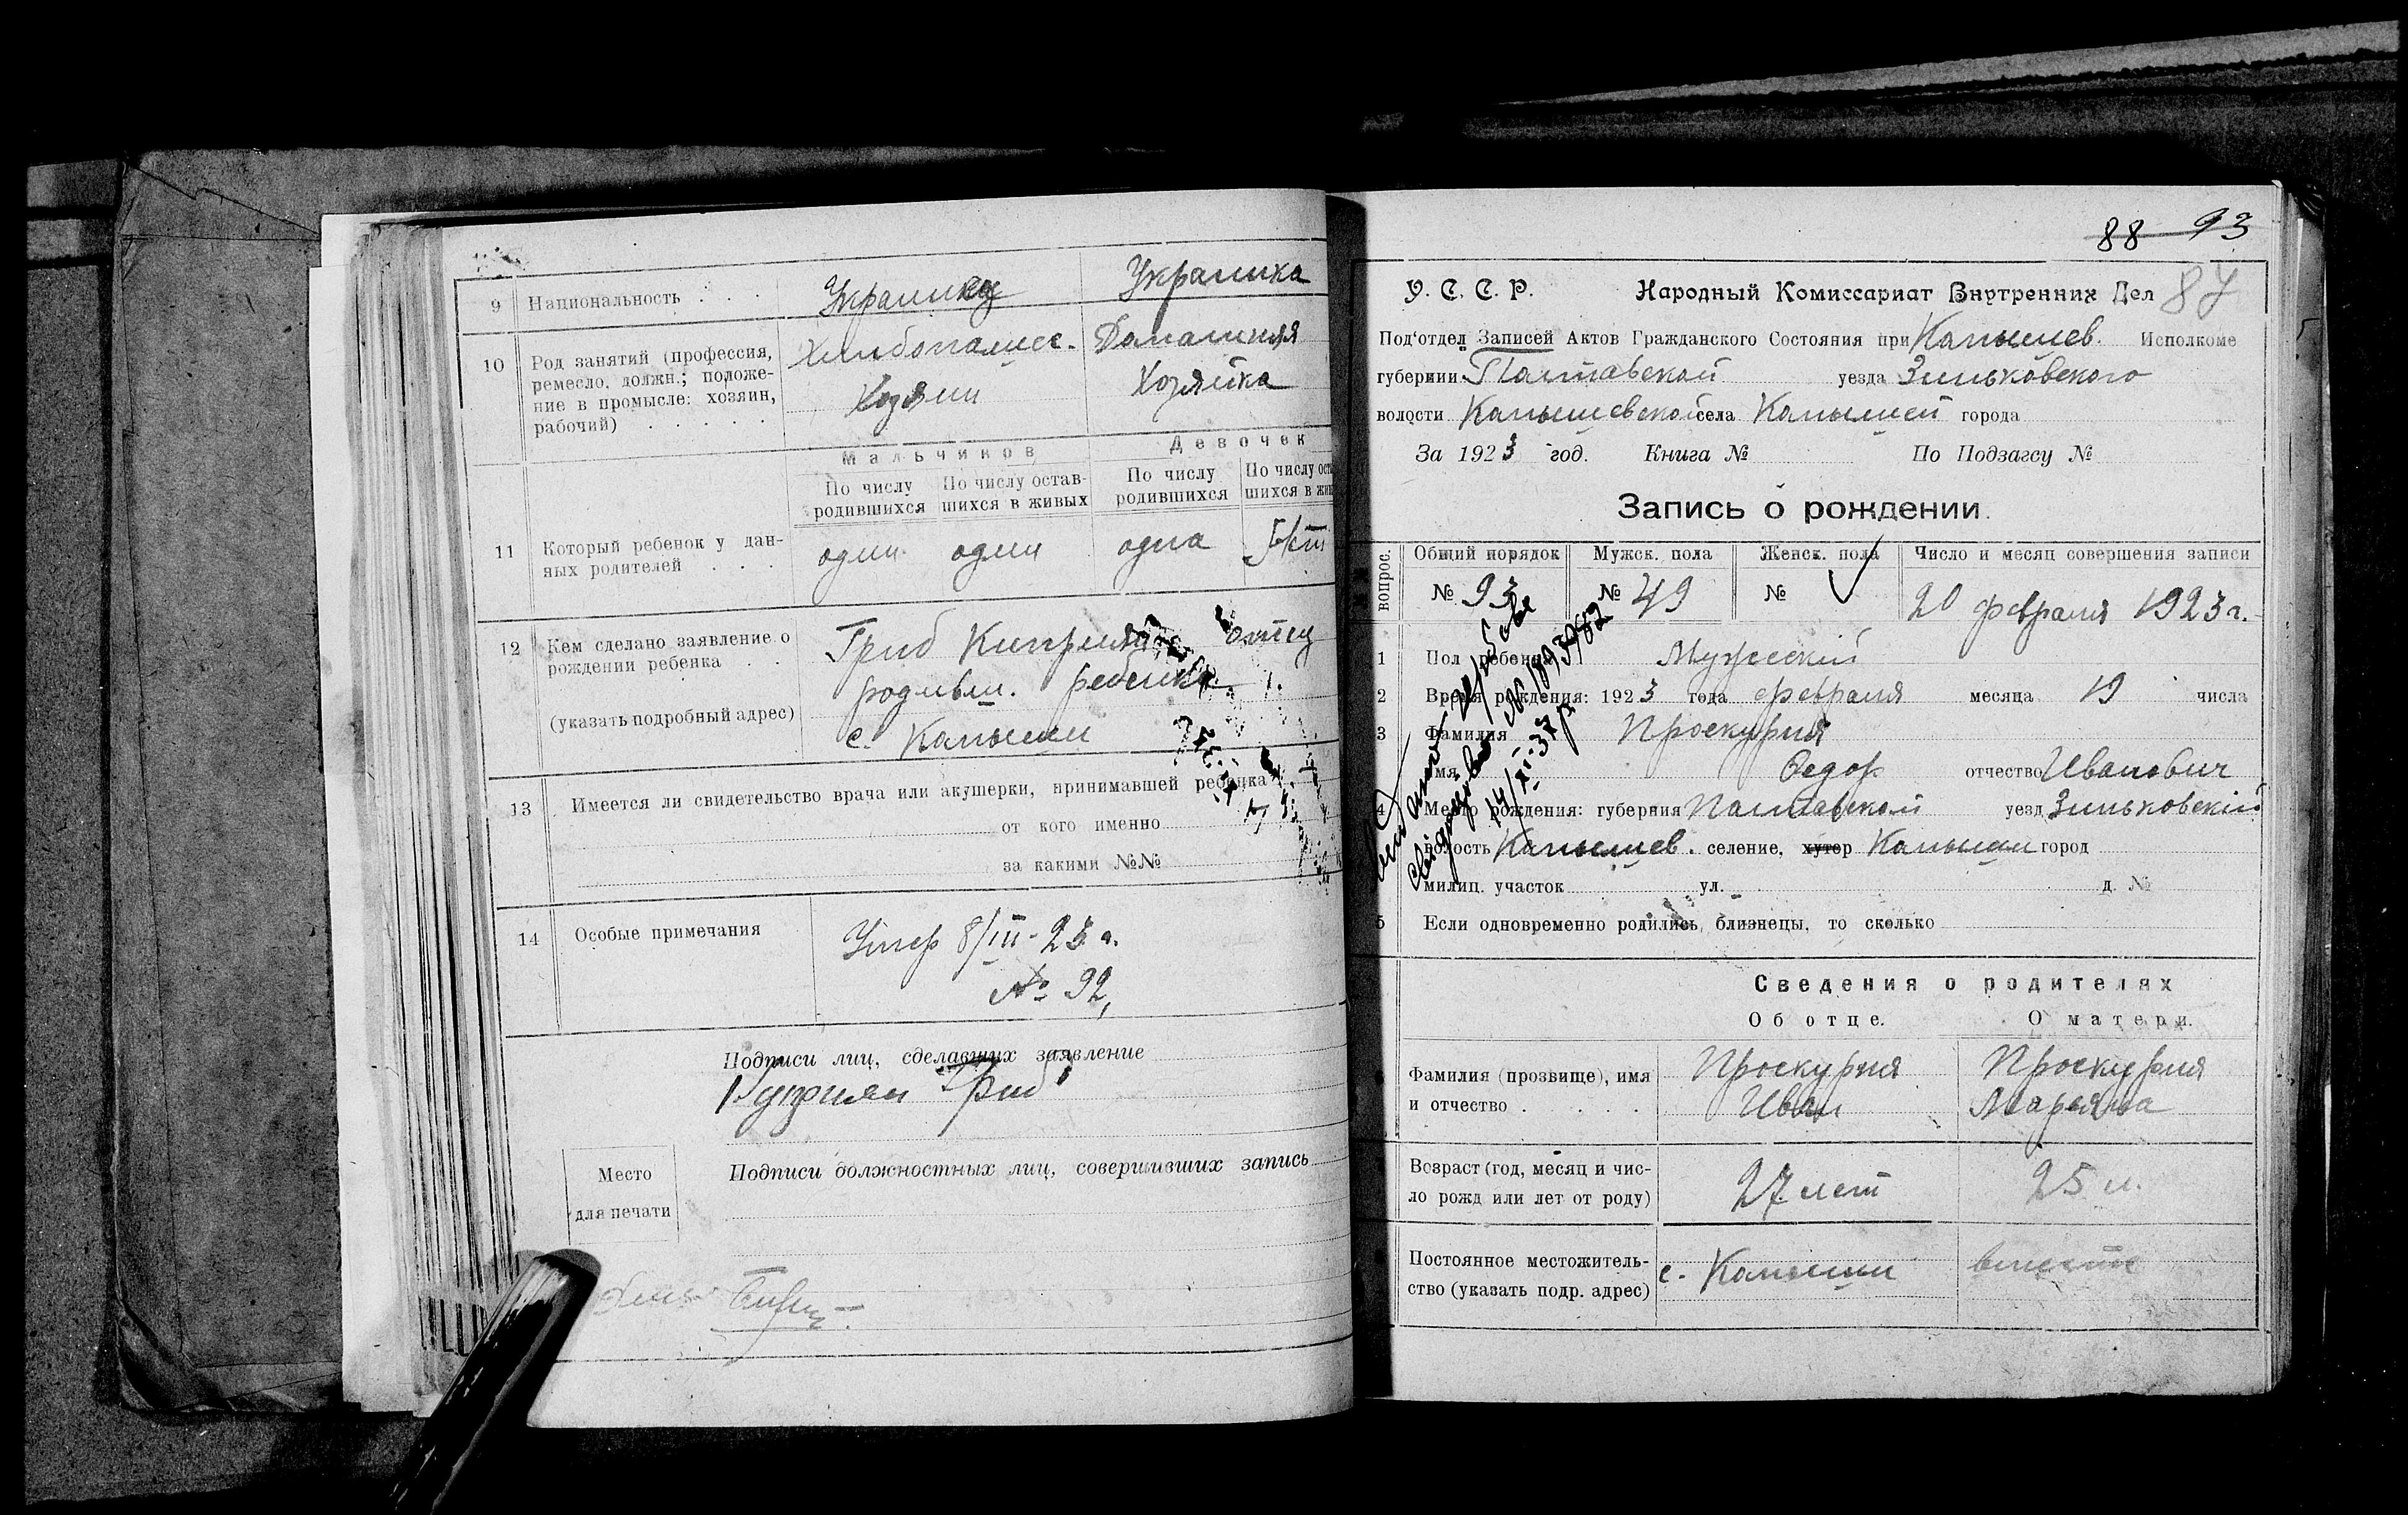 9 Национальность . . . Украинец Украинка
10 Род занятий (профессия, ремесло, должн.; положение в промысле: хозяин, рабочий) . . . . .
Домашняя
Хозяин Хозяйка
Мальчиков Девочек
По числу родившихся По числу оставшихся в живых По числу родившихся По числу
11 Который ребенок у дан-
ных родителей . . . один один одна
12 Кем сделано заявление о
рождении ребенка . .
(указать подробный адрес)
Гриб Киприян отец
родивш. ребенка
с. Капыши
13 Имеется ли свидетельство врача или акушерки, принимавшей ребенка
от кого именно
за какими №№
14 Особые примечания
Умер 8/III-23 г.
№ 92,
Подписи лиц, сделавших заявление
Куприян Гриб
Подписи должностных лиц, совершивших запись
Место
для печати
88 93
87
У. С. С. Р. Народный Комиссариат Внутренних Дел
Под‘отдел Записей Актов Гражданского Состояния при Капышев. Исполкоме
губернии Полтавской уезда Зиньковского
волости Капышевской села Капышей города
За 1923 год. Книга № По Подзагсу №
Запись о рождении.
вопрос. Общий порядок Мужск. пола Женск. пола Число и месяц совершения записи
№ 93 № 49 № 20 февраля 1923 г.
1 Пол ребенка Мужеский
2 Время рождения: 1923 года февраля месяца 19 числа
3 Фамилия Проскурня
Имя Федор отчество Иванович
4 Место рождения: губерния Полтавской уезд Зиньковский
волость Капышев. селение, хутор Капыши город
милиц. участок ул. д. №
5 Если одновременно родились близнецы, то сколько
14/XI-37 р
Сведения о родителях
Об отце. О матери.
Фамилия (прозвище), имя
и отчество . . . . .
Проскурня Проскурня
Иван Марьяна
Возраст (год, месяц и чис-
ло рожд или лет от роду)
27 лет 25 л.
Постоянное местожитель-
ство (указать подр. адрес)
с. Капыши вместе